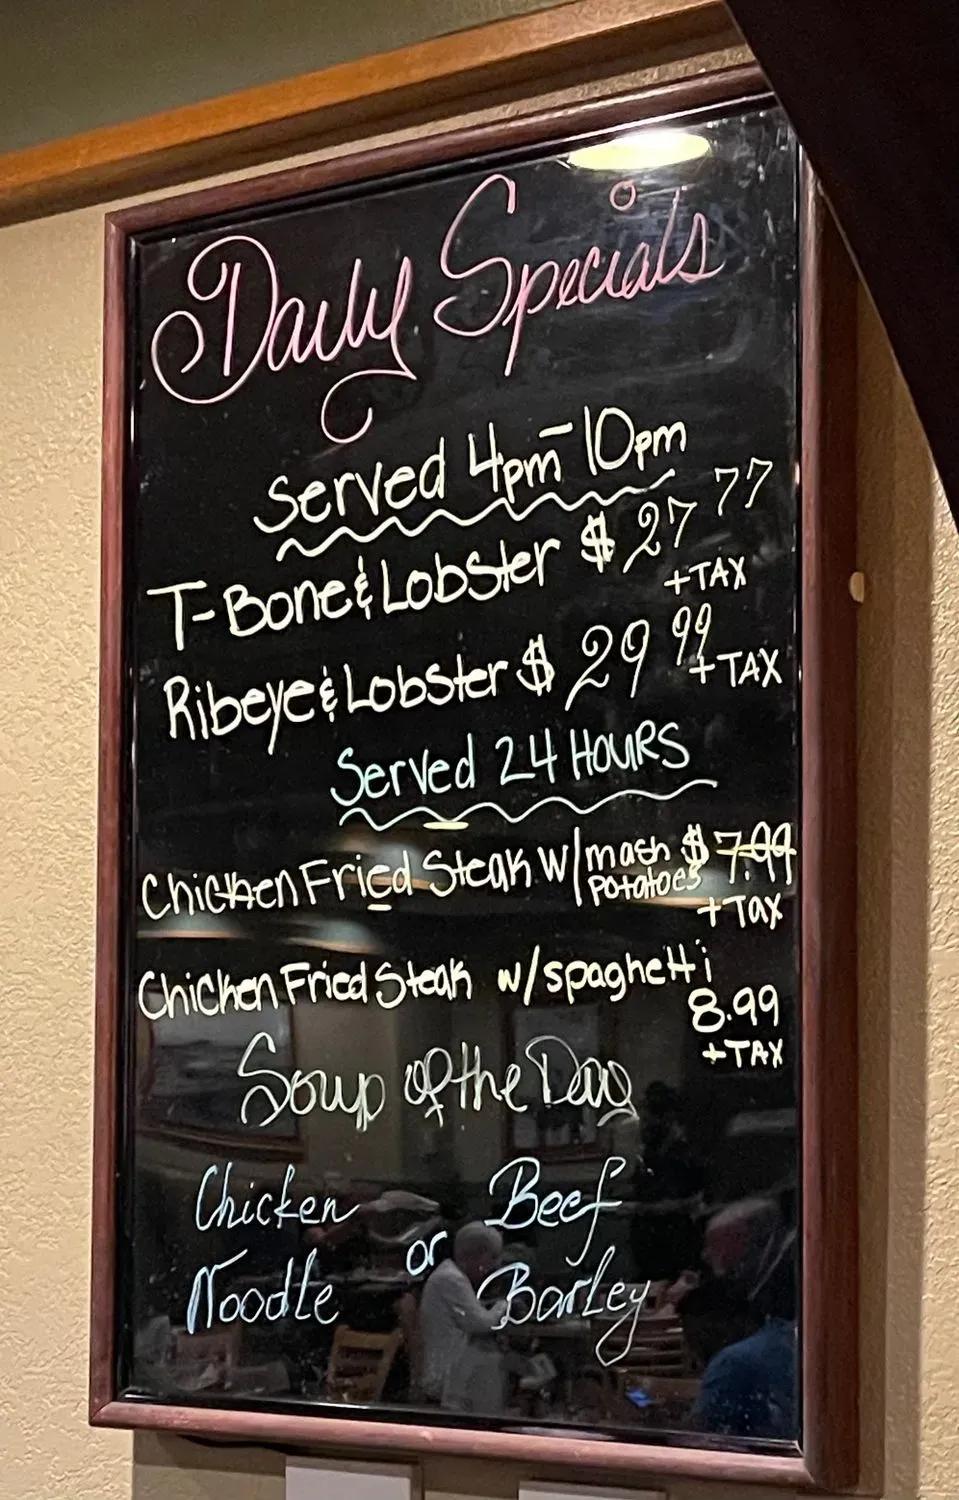 Daily Specials
Served 4pm-10pm
T-Bone & Lobster $27 77
+TAX
Ribeye & Lobster $29 99
+TAX
Served 24 HOURS
Chicken Fried Steak w/ mash potatoes $7.99
+Tax
Chicken Fried Steak w/ spaghetti
8.99
+TAX
Soup of the Day
Chicken or Beef
Noodle Barley